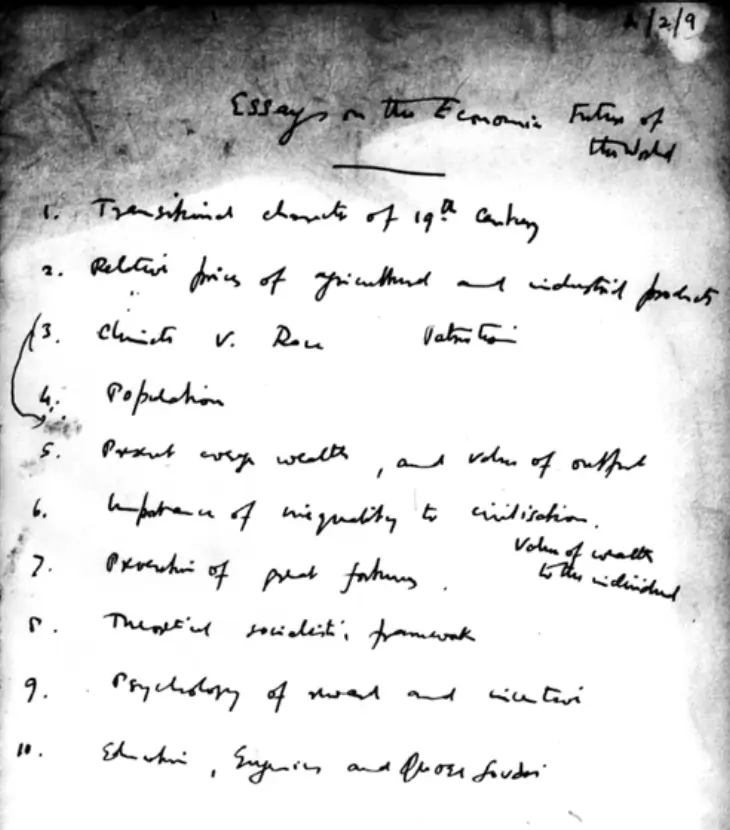 /2/9
Essays on the Economic Future of
the World
1. Transitional character of 19th Century
2. Relative prices of agricultural and industrial products
3. Climate v. Race
4. Population
5. Present average wealth, and value of output
6. Importance of inequality to civilisation.
Value of wealth
to the individual
7. Prevention of great fortunes.
8. Theoretical socialistic framework
9. Psychology of reward and incentive
10. Education, Eugenics and